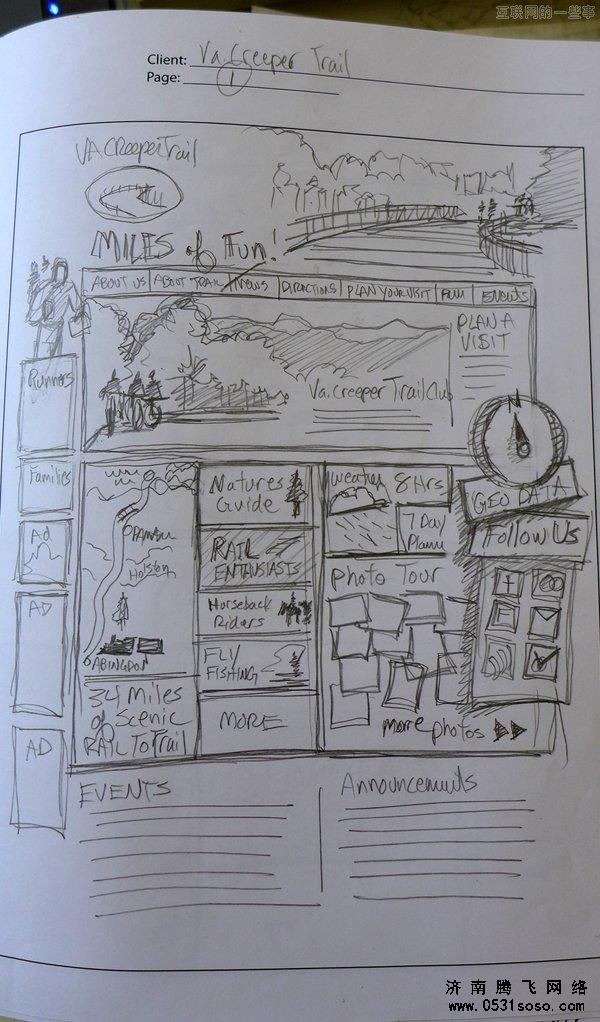 互联网的一些事
Client: Va. Creeper Trail
Page: 1
VA CReeperTrail
MILES of Fun!
ABOUT US
ABOUT TRAIL
NEWS
DIRECTIONS
PLAN YOUR VISIT
FUN
EVENTS
PLAN A
VISIT
Va. Creeper Trail Club
N
Runners
Families
Ad
AD
AD
Holston
ABINGDON
34 Miles
of Scenic
RAIL To Trail
Natures
Guide
RAIL
ENTHUSIASTS
Horseback
Riders
FLY
FISHING
MORE
Weather
8 Hrs
7 Day
GEO DATA
Follow Us
Photo Tour
more photos
EVENTS
Announcements
济南腾飞网络
www.0531soso.com